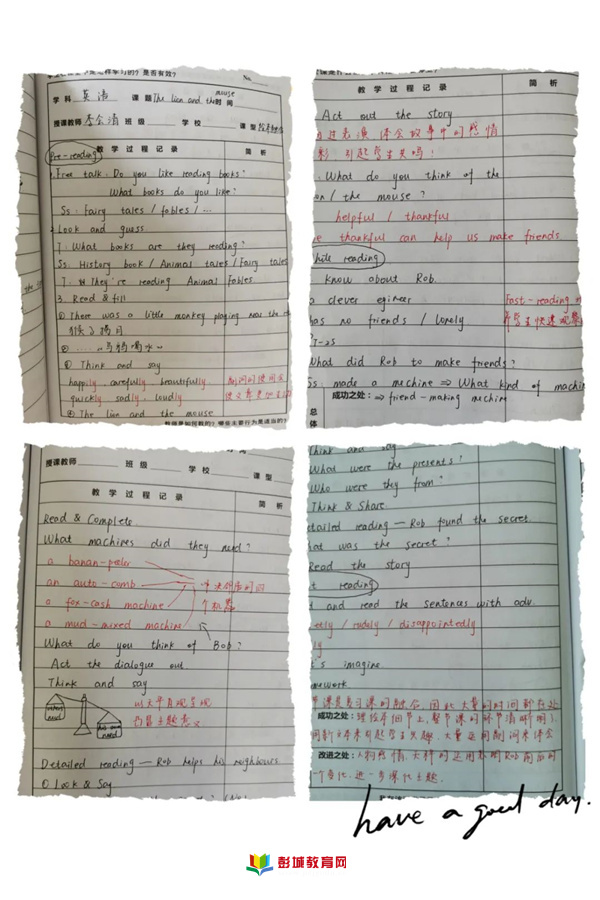 No.
学科 英语 课题 The lion and the mouse 时间
授课教师 李会清 班级 学校 课型
教学过程记录 简析
Pre-reading
Free talk: Do you like reading books?
What books do you like?
Ss: Fairy tales / fables / ...
Look and guess
T: What books are they reading?
Ss: History book / Animal tales / Fairy tales
T: They're reading Animal fables.
3. Read & fill
① There was a little monkey playing near the
猴子捞月
② ...... 《乌鸦喝水》
① Think and say
happily, carefully, beautifully,
quickly sadly, loudly
副词的使用
④ The lion and the mouse
教学过程记录 简析
Act out the story
体会故事中的感情
What do you think of the
on / the mouse?
helpful / thankful
e thankful can help us make friends
hile reading
know about Rob.
a clever egineer
Fast-reading
has no friends / lonely
学生快速
T-Ss
What did Rob to make friends?
Ss: made a machine ⇒ What kind of machin
成功之处: ⇒ friend-making machine
总
体
授课教师 班级 学校 课型
教学过程记录 简析
Read & Complete.
What machines did they need?
a banan-peeler
an auto-comb
a fox-cash machine
个机器
a mud-mixed machine
What do you think of Bob?
Act the dialogue out
Think and say
以天平直观呈现
主题意义
need
need
Detailed reading — Rob helps his neighbours
① Look & Say
Think and say
What were the presents?
Who were they from?
Think & Share
etailed reading — Rob found the secret
hat was the secret?
Read the story
t reading
d and read the sentences with adv.
etly / rudely / disappointedly
ly
t's imagine.
mework
节课是复习课的融合,因此大量的时间都在处
成功之处: 理绘本细节上,整节课的环节清晰明了,
用新绘本来引起学生兴趣,大量运用副词来体会
改进之处: 人物感情,天秤的运用表明Rob前后的
一个变化,进一步深化主题.
have a good day.
彭城教育网